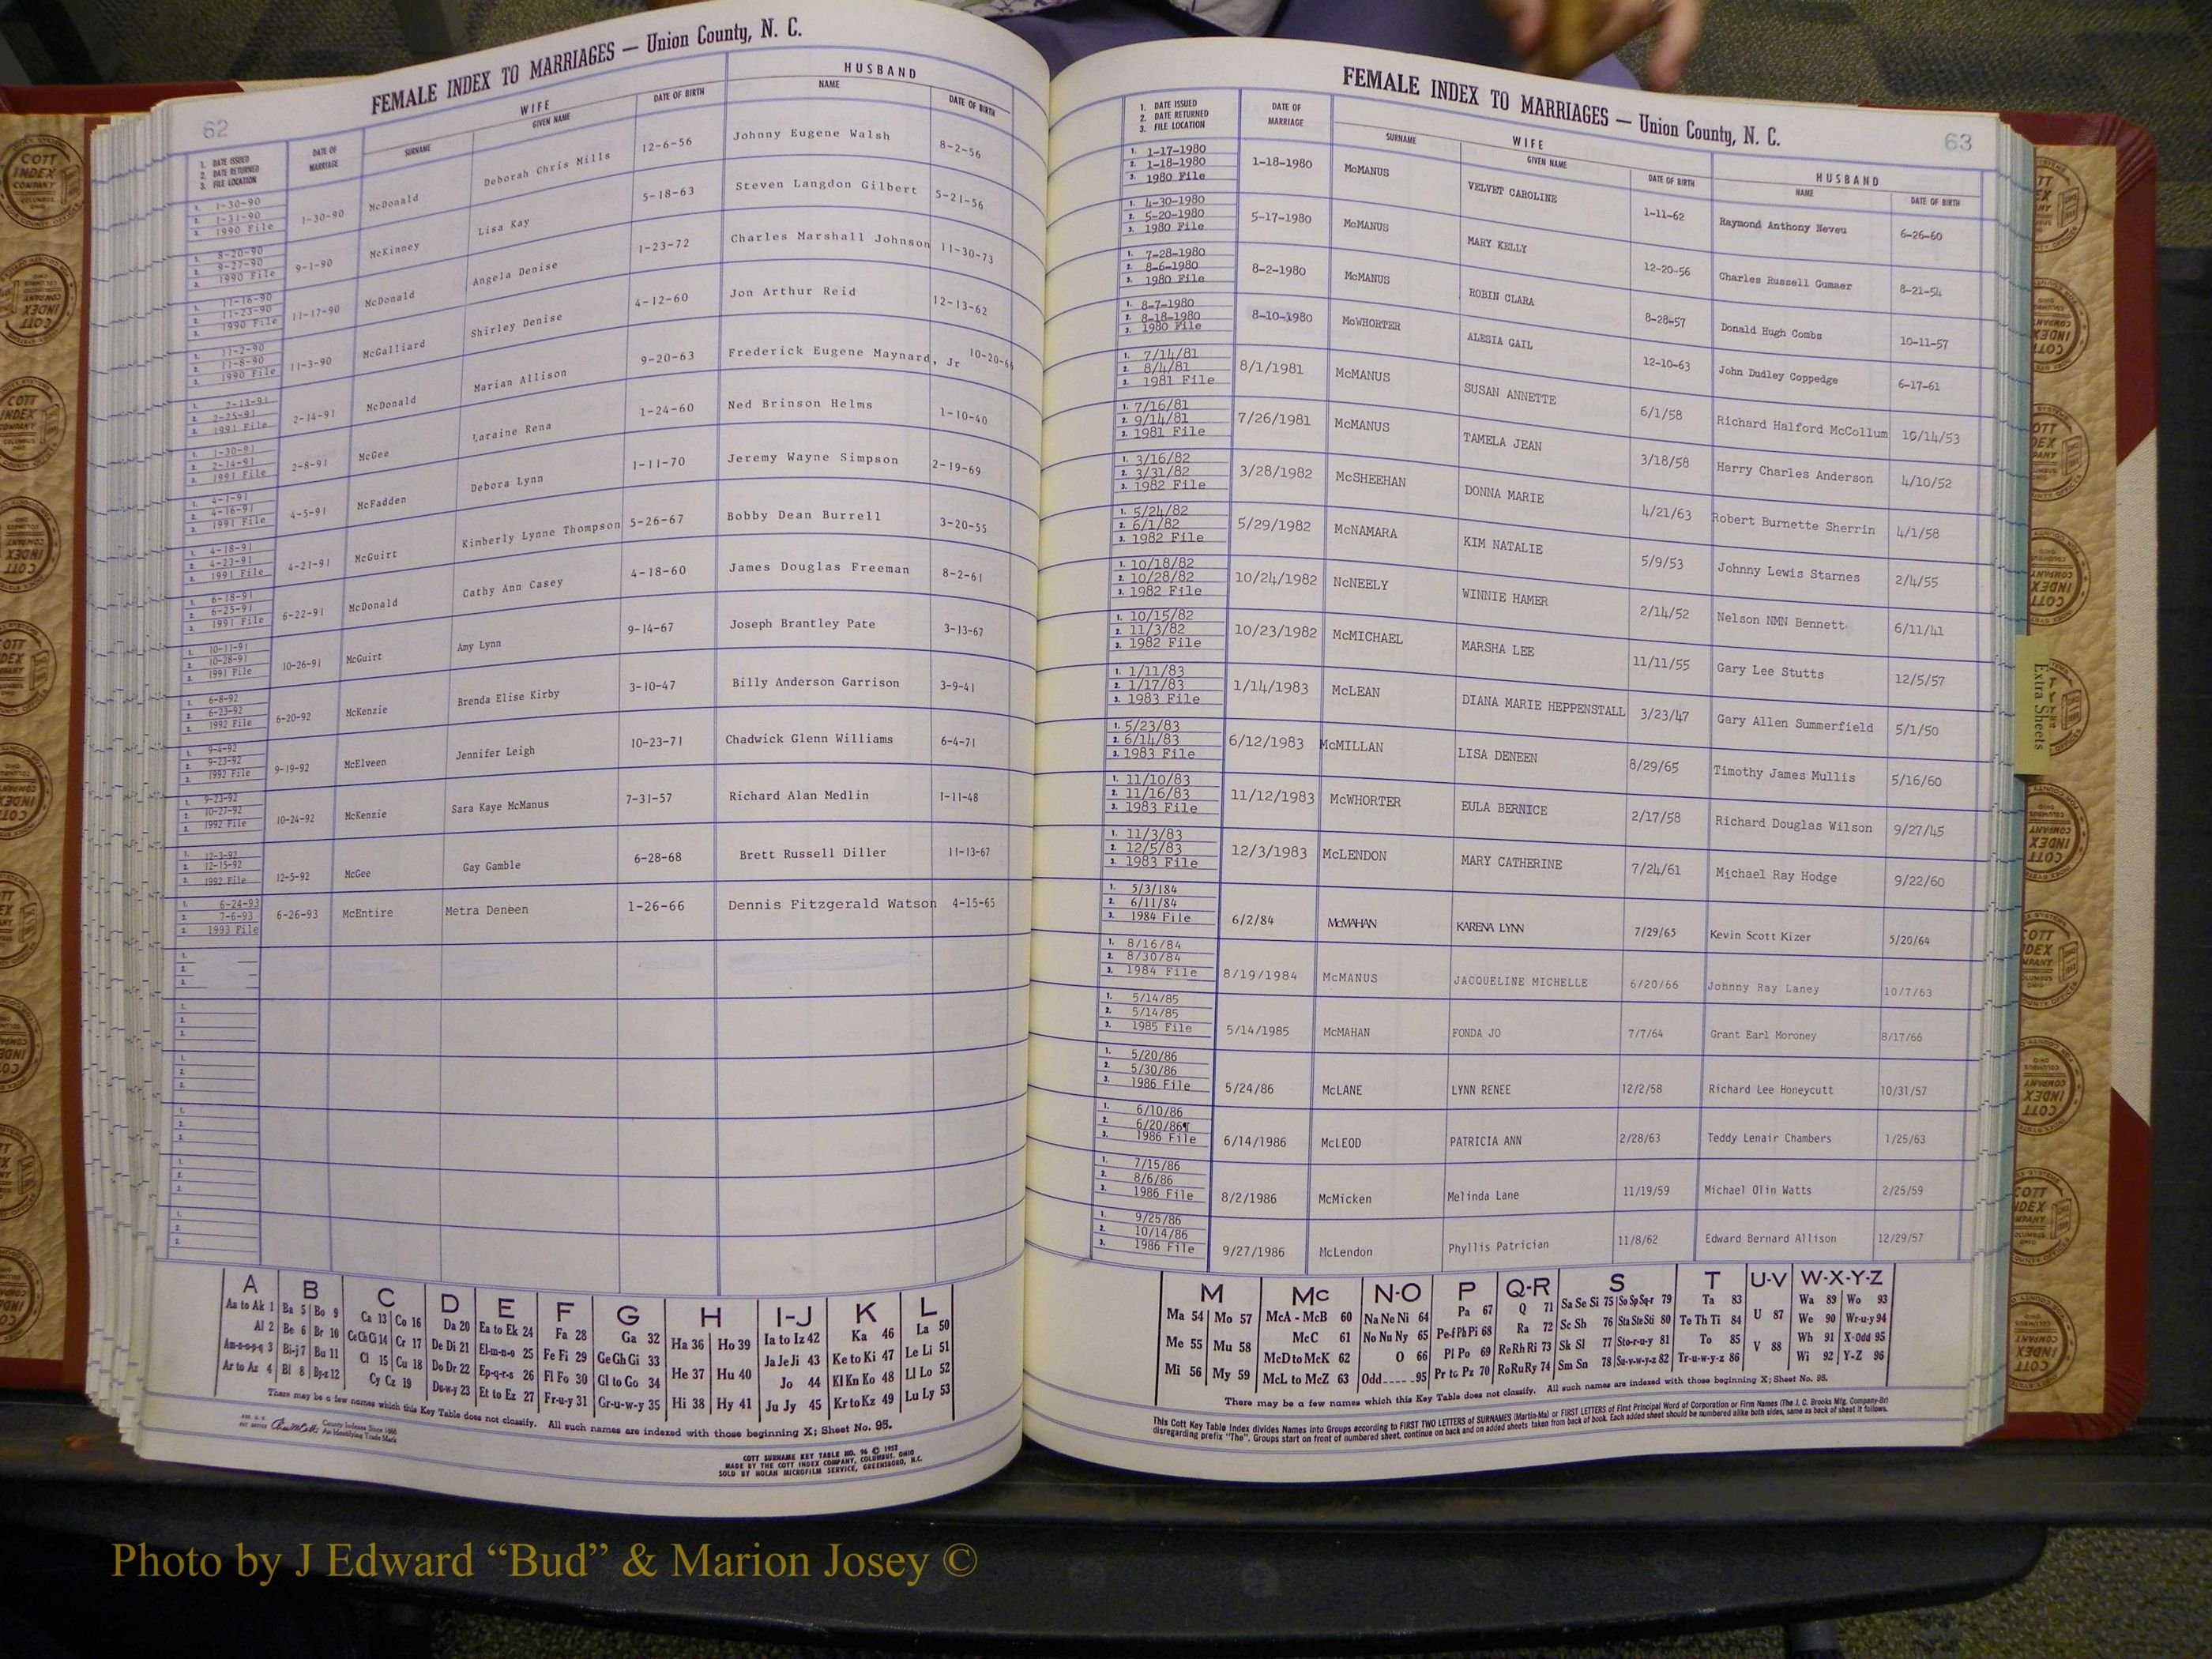 62
FEMALE INDEX TO MARRIAGES — Union County, N. C.
1. DATE ISSUED
2. DATE RETURNED
3. FILE LOCATION
DATE OF MARRIAGE
WIFE
SURNAME
GIVEN NAME
DATE OF BIRTH
HUSBAND
NAME
DATE OF BIRTH
1. 1-30-90 2. 1-31-90 3. 1990 File 1-30-90 McDonald Deborah Chris Mills 12-6-56 Johnny Eugene Walsh 8-2-56
8-20-90 9-27-90 1990 File 9-1-90 McKinney Lisa Kay 5-18-63 Steven Langdon Gilbert 5-21-56
11-16-90 11-23-90 1990 File 11-17-90 McDonald Angela Denise 1-23-72 Charles Marshall Johnson 11-30-73
11-2-90 11-8-90 1990 File 11-3-90 McGalliard Shirley Denise 4-12-60 Jon Arthur Reid 12-13-62
2-13-91 2-25-91 1991 File 2-14-91 McDonald Marian Allison 9-20-63 Frederick Eugene Maynard, Jr 10-20-66
1-30-91 2-14-91 1991 File 2-8-91 McGee Laraine Rena 1-24-60 Ned Brinson Helms 1-10-40
4-1-91 4-16-91 1991 File 4-5-91 McFadden Debora Lynn 1-11-70 Jeremy Wayne Simpson 2-19-69
4-18-91 4-23-91 1991 File 4-21-91 McGuirt Kimberly Lynne Thompson 5-26-67 Bobby Dean Burrell 3-20-55
6-18-91 6-25-91 1991 File 6-22-91 McDonald Cathy Ann Casey 4-18-60 James Douglas Freeman 8-2-61
10-11-91 10-28-91 1991 File 10-26-91 McGuirt Amy Lynn 9-14-67 Joseph Brantley Pate 3-13-67
6-8-92 6-23-92 1992 File 6-20-92 McKenzie Brenda Elise Kirby 3-10-47 Billy Anderson Garrison 3-9-41
9-4-92 9-23-92 1992 File 9-19-92 McElveen Jennifer Leigh 10-23-71 Chadwick Glenn Williams 6-4-71
9-23-92 10-27-92 1992 File 10-24-92 McKenzie Sara Kaye McManus 7-31-57 Richard Alan Medlin 1-11-48
12-3-92 12-15-92 1992 File 12-5-92 McGee Gay Gamble 6-28-68 Brett Russell Diller 11-13-67
6-24-93 7-6-93 1993 File 6-26-93 McEntire Metra Deneen 1-26-66 Dennis Fitzgerald Watson 4-15-65
A B C D E F G H I-J K L
Aa to Ak 1 Ba 5 Bo 9 Ca 13 Co 16 Da 20 Ea to Ek 24 Fa 28 Ga 32 Ha 36 Ho 39 Ia to Iz 42 Ka 46 La 50
Al 2 Be 6 Br 10 Ce Ch Ci 14 Cr 17 De Di 21 El-m-n-o 25 Fe Fi 29 Ge Gh Gi 33 Ja Je Ji 43 Ke to Ki 47 Le Li 51
Am-n-o-p-q 3 Bi-j 7 Bu 11 Cl 15 Cu 18 Do Dr 22 Ep-q-r-s 26 Fl Fo 30 Gl to Go 34 He 37 Hu 40 Jo 44 Kl Kn Ko 48 Ll Lo 52
Ar to Az 4 Bl 8 By-z 12 Cy Cz 19 Du-w-y 23 Et to Ez 27 Fr-u-y 31 Gr-u-w-y 35 Hi 38 Hy 41 Ju Jy 45 Kr to Kz 49 Lu Ly 53
There may be a few names which this Key Table does not classify. All such names are indexed with those beginning X; Sheet No. 95.
County Indexes Since 1888
An Identifying Trade Mark
COTT SURNAME KEY TABLE NO. 96 © 1952
MADE BY THE COTT INDEX COMPANY, COLUMBUS, OHIO
SOLD BY NOLAN MICROFILM SERVICE, GREENSBORO, N.C.
FEMALE INDEX TO MARRIAGES — Union County, N. C.
63
1. DATE ISSUED
2. DATE RETURNED
3. FILE LOCATION
DATE OF MARRIAGE
WIFE
SURNAME
GIVEN NAME
DATE OF BIRTH
HUSBAND
NAME
DATE OF BIRTH
1. 1-17-1980 2. 1-18-1980 3. 1980 File 1-18-1980 McMANUS VELVET CAROLINE 1-11-62 Raymond Anthony Neveu 6-26-60
1. 4-30-1980 2. 5-20-1980 3. 1980 File 5-17-1980 McMANUS MARY KELLY 12-20-56 Charles Russell Gumaer 8-21-54
1. 7-28-1980 2. 8-6-1980 3. 1980 File 8-2-1980 McMANUS ROBIN CLARA 8-28-57 Donald Hugh Combs 10-11-57
1. 8-7-1980 2. 8-18-1980 3. 1980 File 8-10-1980 McWHORTER ALESIA GAIL 12-10-63 John Dudley Coppedge 6-17-61
1. 7/14/81 2. 8/4/81 3. 1981 File 8/1/1981 McMANUS SUSAN ANNETTE 6/1/58 Richard Halford McCollum 10/14/53
1. 7/16/81 2. 9/14/81 3. 1981 File 7/26/1981 McMANUS TAMELA JEAN 3/18/58 Harry Charles Anderson 4/10/52
1. 3/16/82 2. 3/31/82 3. 1982 File 3/28/1982 McSHEEHAN DONNA MARIE 4/21/63 Robert Burnette Sherrin 4/1/58
1. 5/24/82 2. 6/1/82 3. 1982 File 5/29/1982 McNAMARA KIM NATALIE 5/9/53 Johnny Lewis Starnes 2/4/55
1. 10/18/82 2. 10/28/82 3. 1982 File 10/24/1982 NcNEELY WINNIE HAMER 2/14/52 Nelson NMN Bennett 6/11/41
1. 10/15/82 2. 11/3/82 3. 1982 File 10/23/1982 McMICHAEL MARSHA LEE 11/11/55 Gary Lee Stutts 12/5/57
1. 1/11/83 2. 1/17/83 3. 1983 File 1/14/1983 McLEAN DIANA MARIE HEPPENSTALL 3/23/47 Gary Allen Summerfield 5/1/50
1. 5/23/83 2. 6/14/83 3. 1983 File 6/12/1983 McMILLAN LISA DENEEN 8/29/65 Timothy James Mullis 5/16/60
1. 11/10/83 2. 11/16/83 3. 1983 File 11/12/1983 McWHORTER EULA BERNICE 2/17/58 Richard Douglas Wilson 9/27/45
1. 11/3/83 2. 12/5/83 3. 1983 File 12/3/1983 McLENDON MARY CATHERINE 7/24/61 Michael Ray Hodge 9/22/60
1. 5/3/184 2. 6/11/84 3. 1984 File 6/2/84 McMAHAN KARENA LYNN 7/29/65 Kevin Scott Kizer 5/20/64
1. 8/16/84 2. 8/30/84 3. 1984 File 8/19/1984 McMANUS JACQUELINE MICHELLE 6/20/66 Johnny Ray Laney 10/7/63
1. 5/14/85 2. 5/14/85 3. 1985 File 5/14/1985 McMAHAN FONDA JO 7/7/64 Grant Earl Moroney 8/17/66
1. 5/20/86 2. 5/30/86 3. 1986 File 5/24/86 McLANE LYNN RENEE 12/2/58 Richard Lee Honeycutt 10/31/57
1. 6/10/86 2. 6/20/86¶ 3. 1986 File 6/14/1986 McLEOD PATRICIA ANN 2/28/63 Teddy Lenair Chambers 1/25/63
1. 7/15/86 2. 8/6/86 3. 1986 File 8/2/1986 McMicken Melinda Lane 11/19/59 Michael Olin Watts 2/25/59
1. 9/25/86 2. 10/14/86 3. 1986 File 9/27/1986 McLendon Phyllis Patrician 11/8/62 Edward Bernard Allison 12/29/57
M Mc N-O P Q-R S T U-V W-X-Y-Z
Ma 54 Mo 57 McA - McB 60 Na Ne Ni 64 Pa 67 Q 71 Sa Se Si 75 So Sp Sq-r 79 Ta 83 U 87 Wa 89 Wo 93
Me 55 Mu 58 McC 61 No Nu Ny 65 Pe-f Ph Pi 68 Ra 72 Sc Sh 76 Sta Ste Sti 80 Te Th Ti 84 We 90 Wr-u-y 94
McD to McK 62 O 66 Pl Po 69 Re Rh Ri 73 Sk Sl 77 Sto-r-u-y 81 To 85 V 88 Wh 91 X-Odd 95
Mi 56 My 59 McL to McZ 63 Odd-----95 Pr to Pz 70 Ro Ru Ry 74 Sm Sn 78 Su-v-w-y-z 82 Tr-u-w-y-z 86 Wi 92 Y-Z 96
There may be a few names which this Key Table does not classify. All such names are indexed with those beginning X; Sheet No. 95.
This Cott Key Table Index divides Names into Groups according to FIRST TWO LETTERS of SURNAMES (Martin-Ma) or FIRST LETTERS of First Principal Word of Corporation or Firm Names (The J. C. Brooks Mfg. Company-Br)
disregarding prefix "The". Groups start on front of numbered sheet, continue on back and on added sheets taken from back of book. Each added sheet should be numbered alike both sides, same as back of sheet it follows.
Extra Sheets
COTT INDEX COMPANY
Photo by J Edward “Bud” & Marion Josey ©